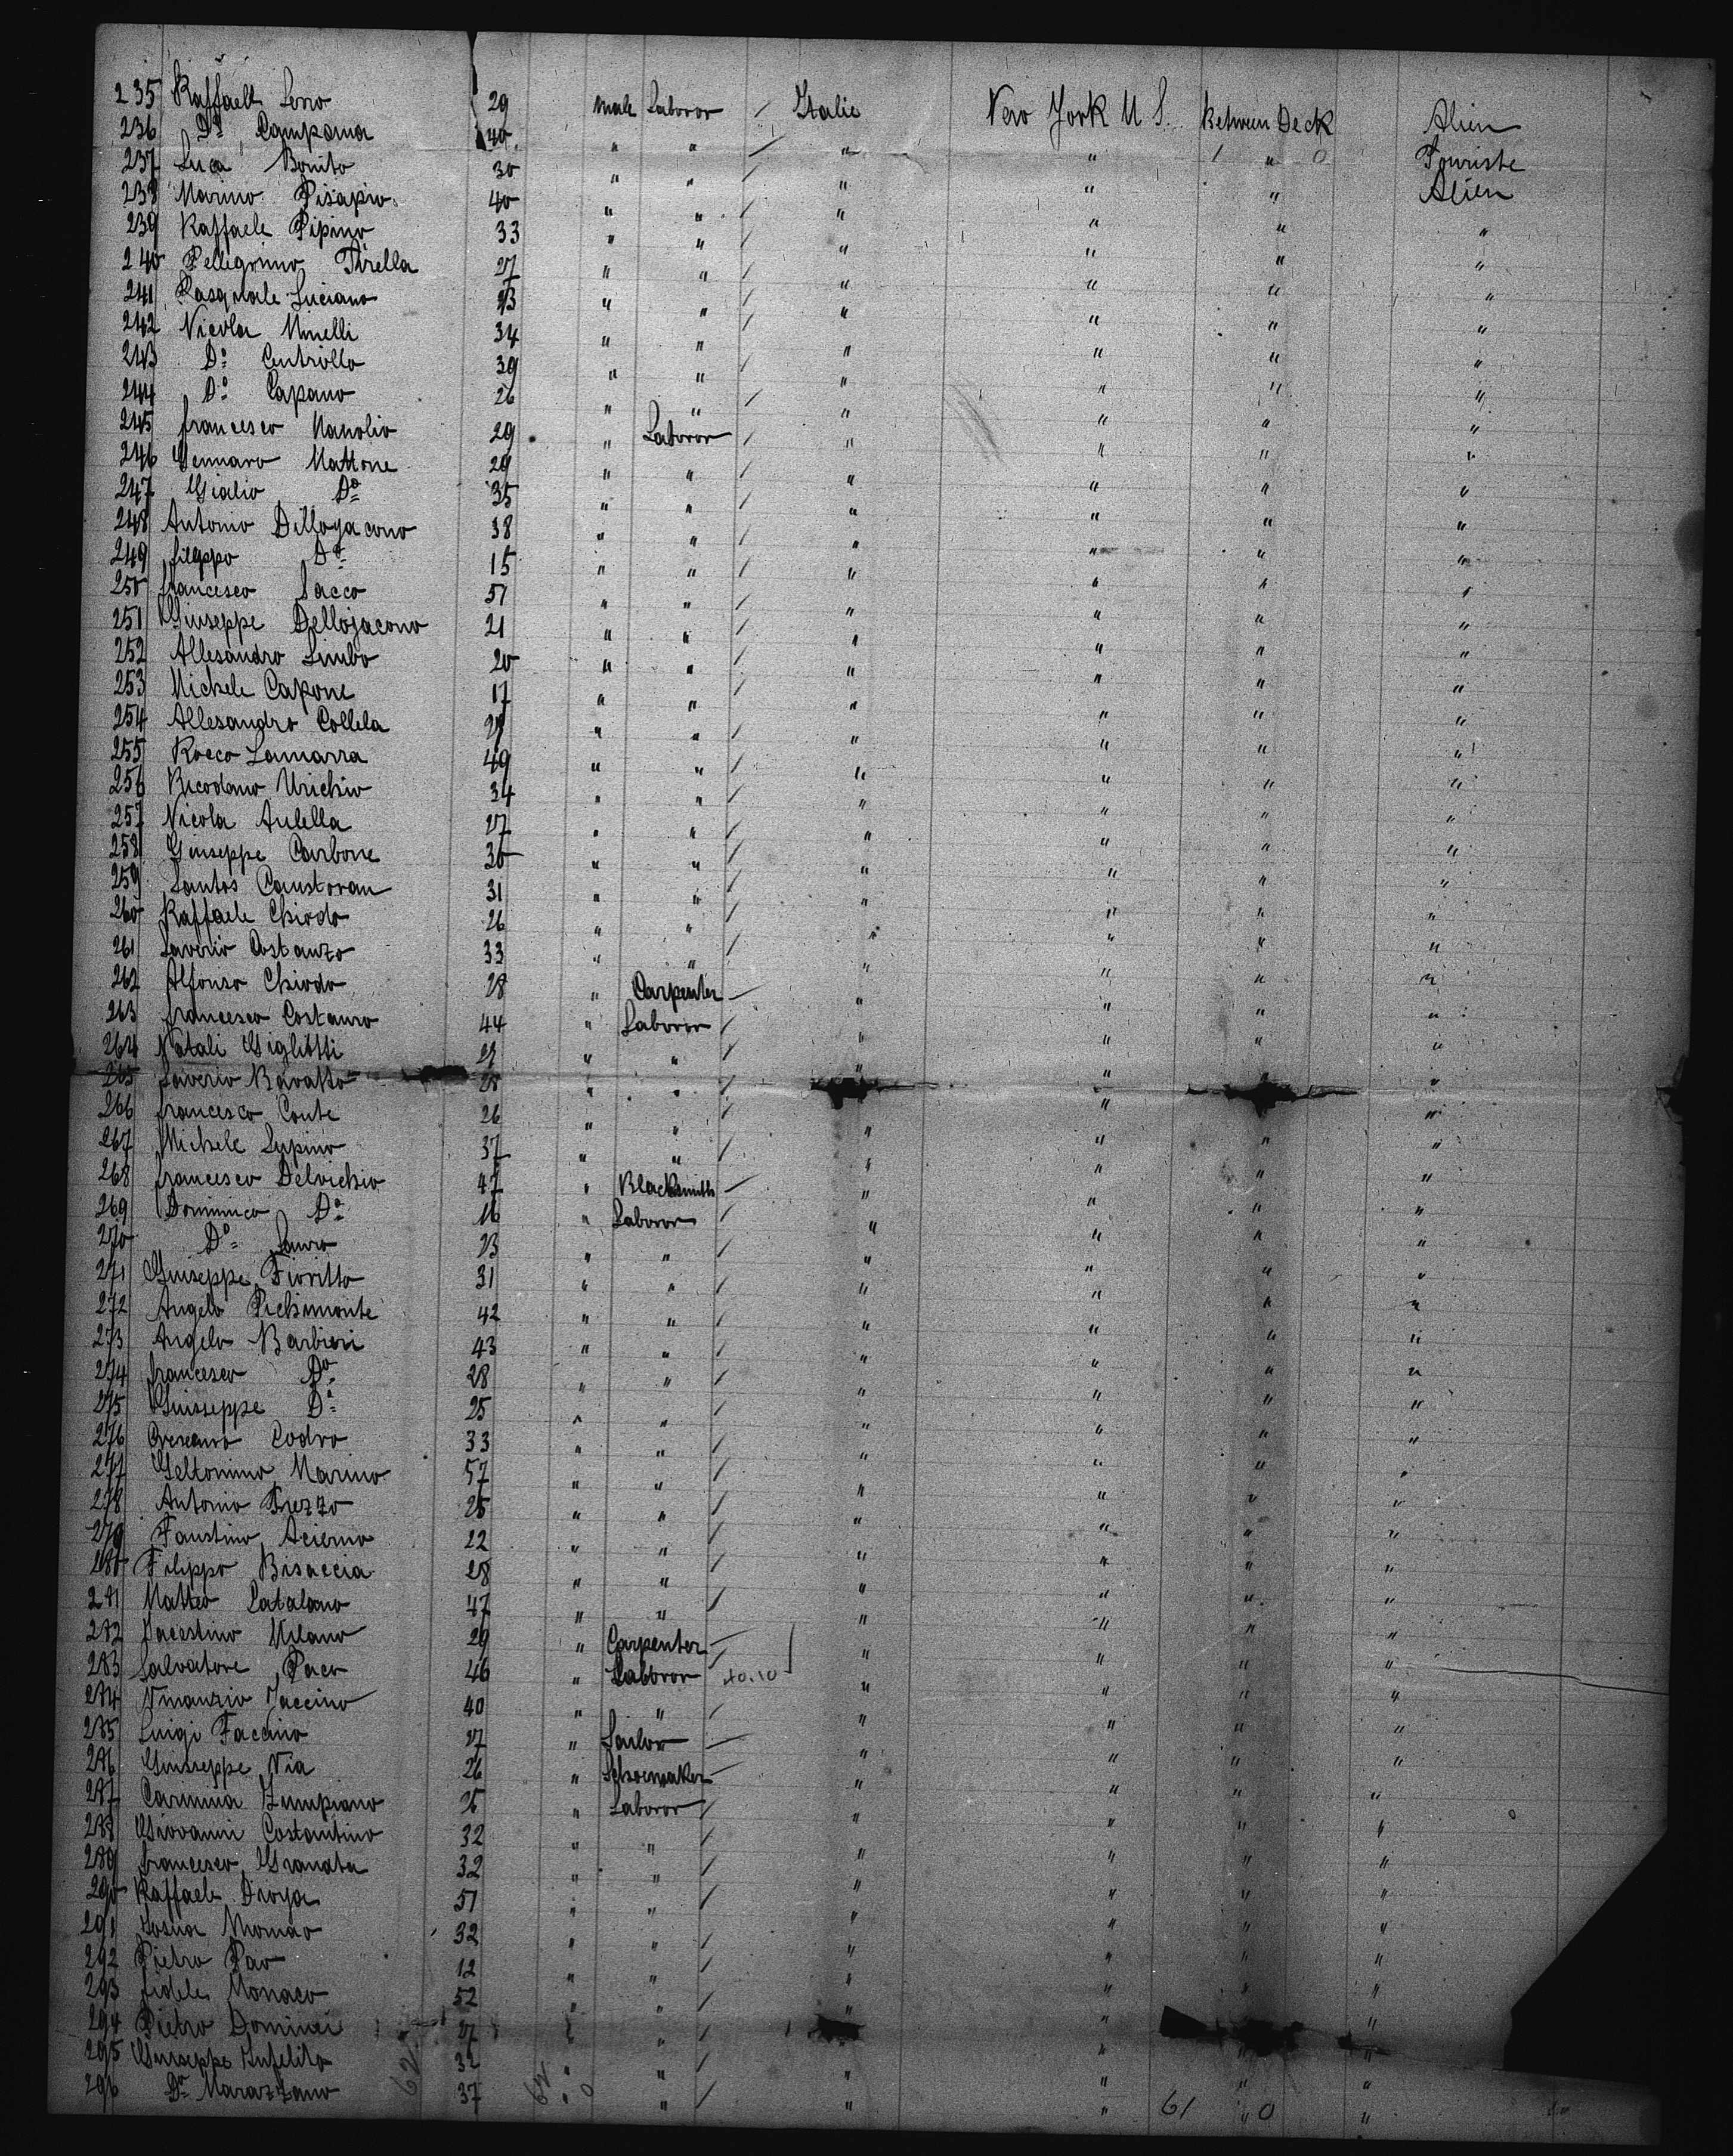 235 Raffaele Serro 29 Male Laboror / Italie New York U S. Between Deck Alien
236 Do Campana 40 " " / " " 1 " 0 Touriste
237 Luca Bonito 30 " " / " " " Alien
238 Marino Pisapio 40 " " / " " " "
239 Raffaele Pipino 33 " " / " " " "
240 Pellegrino Tirella 27 " " / " " " "
241 Pasquale Luciano 23 " " / " " " "
242 Nicola Minelli 34 " " / " " " "
243 Do Centrollo 39 " " / " " " "
244 Do Capano 26 " " / " " " "
245 francesco Manolio 29 " Laboror / " " " "
246 Gennaro Mattone 29 " " / " " " "
247 Gialio Do 35 " " / " " " "
248 Antonio Dilloyacono 38 " " / " " " "
249 filippo Do 15 " " / " " " "
250 francesco Sacco 51 " " / " " " "
251 Giuseppe Dellojacono 21 " " / " " " "
252 Allesandro Limbo 20 " " / " " " "
253 Michele Capone 17 " " / " " " "
254 Allesandro Collela " " / " " " "
255 Rocco Lamarra 49 " " / " " " "
256 Urichio 34 " " / " " " "
257 Nicola Aulella 27 " " / " " " "
258 Giuseppe Carbone 30 " " / " " " "
259 Santos 31 " " / " " " "
260 Raffaele Chiodo 26 " " / " " " "
261 Saverio Costanzo 33 " " / " " " "
262 Alfonso Chiodo 28 " Carpenter / " " " "
263 francesco Costanzo 44 " Laboror / " " " "
264 Natali Gigliotti 27 " " / " " " "
265 Saverio 28 " " / " " "
266 francesco Conte 26 " " / " " " "
267 Michele Lupino 37 " " / " " " "
268 francesco Delvichio 47 " Blacksmith / " " " "
269 Dominico Do 16 " Laboror / " " " "
270 Do Lauro 23 " " / " " " "
271 Giuseppe Fioritto 31 " " / " " " "
272 Angelo Pichimonte 42 " " / " " " "
273 Angelo Barbieri 43 " " / " " " "
274 francesco Do 28 " " / " " " "
275 Giuseppe Do 25 " " / " " " "
276 Codro 33 " " / " " " "
277 Geltonimo Marino 57 " " / " " " "
278 Antonio Frezzo 25 " " / " " " "
279 Faustino Acierno 22 " " / " " " "
280 Filippo Bisaccia 28 " " / " " " "
281 Matteo Catalano 47 " " / " " " "
282 Milano 29 " Carpenter / " " " "
283 Salvatore Paco 46 " Laboror " " " "
284 Vinanzio Jaccino 40 " " / " " " "
285 Luigi Faccino 27 " / " " " "
286 Giuseppe Via 26 " Schoemaker / " " " "
287 Carminia Zumpiano " Laboror / " " " "
288 Giovanni Costantino 32 " " / " " " "
289 francesco Granata 32 " " / " " " "
290 Raffaele Droya 51 " " / " " " "
291 32 " " / " " " "
292 Pietro Pao 12 " " / " " " "
293 fidele Monaco 52 " " / " " " "
294 Pietro Dominici 27 " " / " "
295 Giuseppe 32 " " / " " " "
296 Do Marazzano 37 " " / " " 61 " 0 "